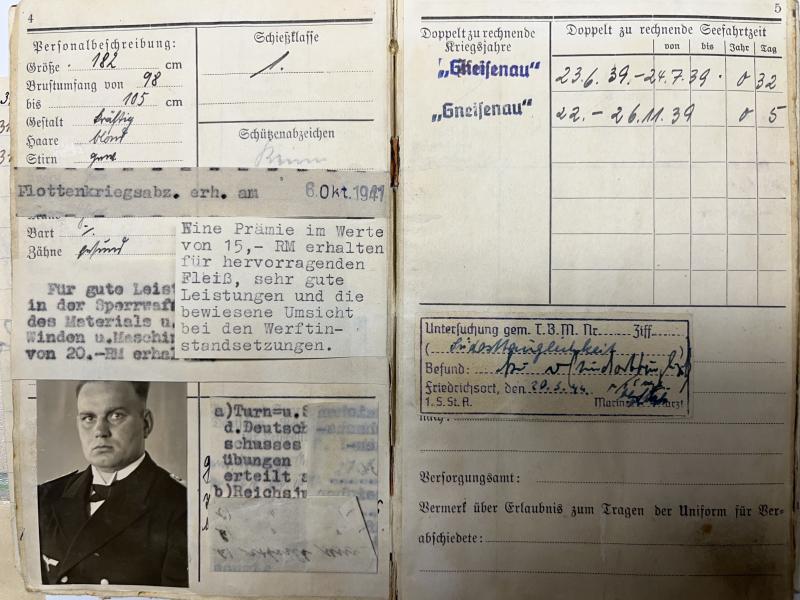 4
Personalbeschreibung:
Größe 182 cm
Brustumfang von 98
bis 105 cm
Gestalt kräftig
Haare blond
Stirn
Schießklasse
1.
Schützenabzeichen
Flottenkriegsabz. erh. am 6. Okt. 1941
Bart
Zähne gesund
Eine Prämie im Werte
von 15,- RM erhalten
für hervorragenden
Fleiß, sehr gute
Leistungen und die
bewiesene Umsicht
bei den Werftin-
standsetzungen.
Für gute Leist
in der Sperrwaf
des Materials u.
Winden u.Maschi
von 20.-RM erhal
a)Turn=u.S
d.Deutsch
schusses
übungen
erteilt
b)Reichs
5
Doppelt zu rechnende
Kriegsjahre
Doppelt zu rechnende Seefahrtzeit
von bis Jahr Tag
„Gneisenau“ 23.6.39.-24.7.39. 0 32
„Gneisenau“ 22.-26.11.39 0 5
Untersuchung gem. T.B.M. Nr. Ziff
(
Befund:
Friedrichsort, den 20.5.44.
1. S. St. A.
Versorgungsamt:
Vermerk über Erlaubnis zum Tragen der Uniform für Ver-
abschiedete: